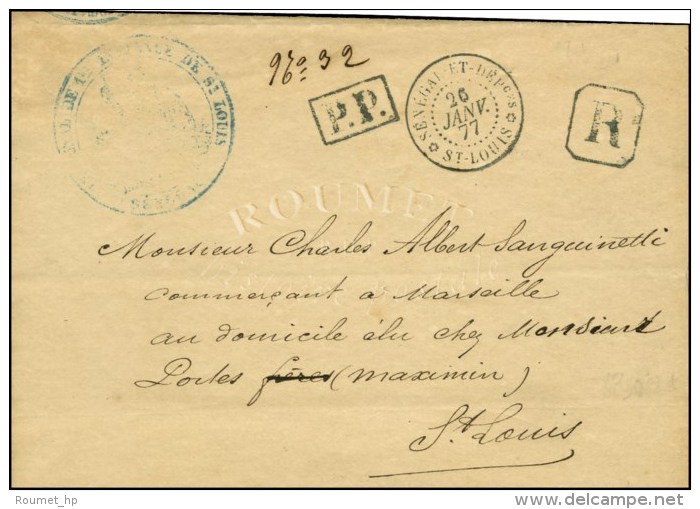 DE 1
DE St LOUIS
SÉNÉGAL
No 32
P.P.
SÉNÉGAL ET DÉPces
20
JANV.
77
ST-LOUIS
R
ROUMET
Monsieur Charles Albert Sanguinetti
commerçant à Marseille
au domicile élu chez Monsieur
Portes frères (maximin)
St Louis
Roumet_hp
delcampe.net